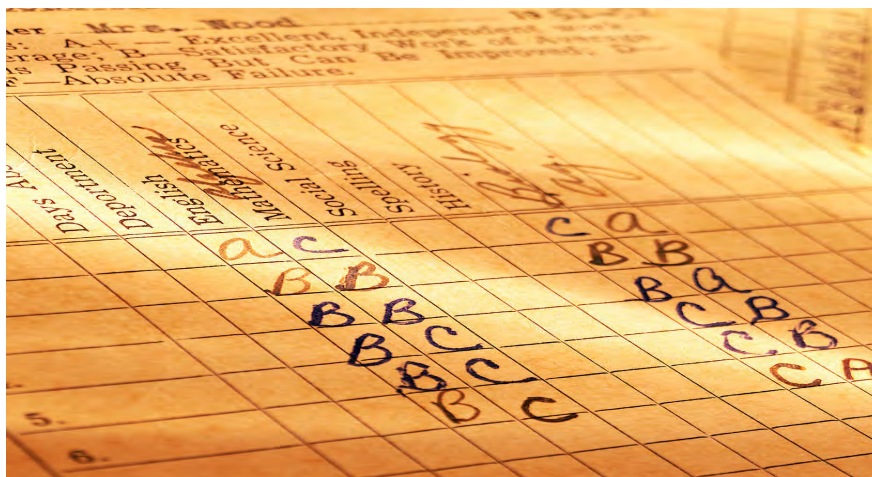 her Mrs. Wood
s: A+—Excellent, Independent work
erage; B—Satisfactory Work of
is Passing, But Can Be Improved;
F—Absolute Failure.
Days Abs
Deportment
English
Mathematics
Social Science
Spelling
History
Biology
a C C a
B B B B
B B B a
B C C B
5. B C C B
6. B C C A